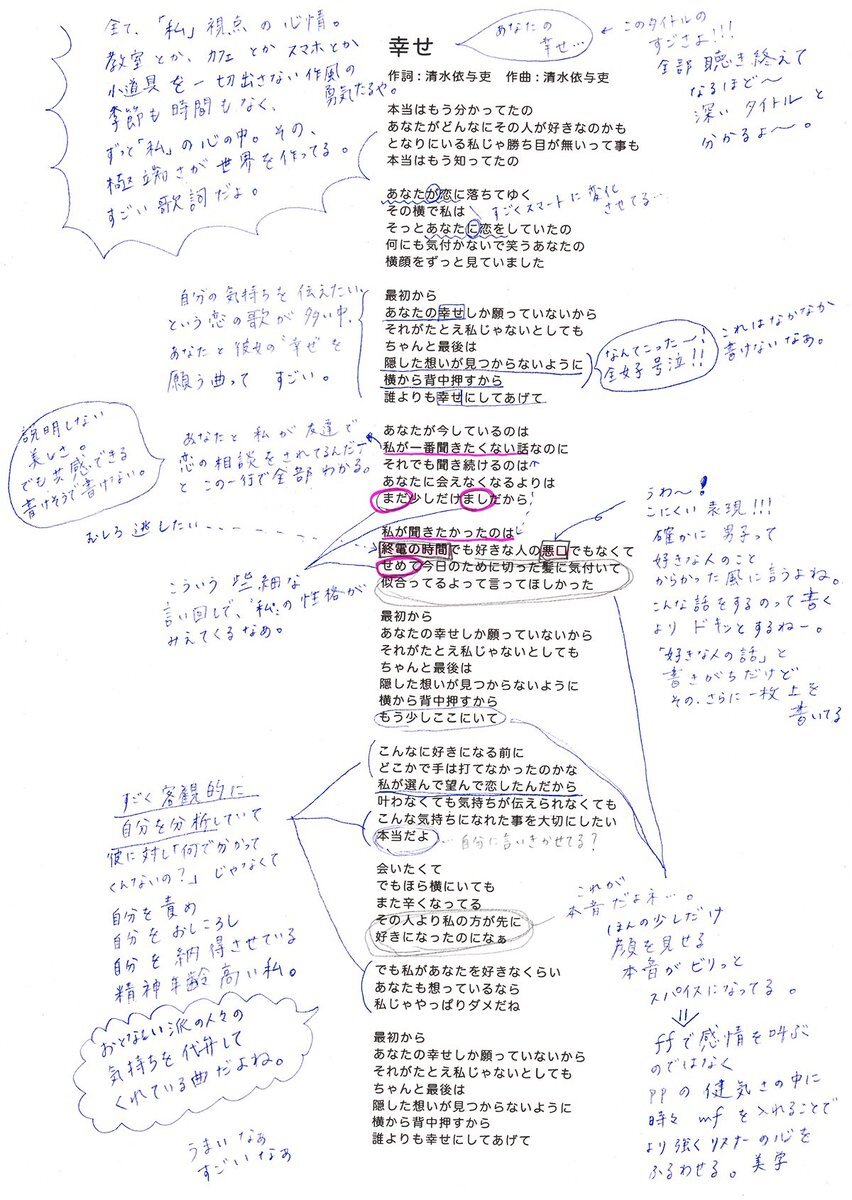 幸せ
作詞：清水依与吏　作曲：清水依与吏
あなたの
幸せ…
← このタイトルの
すごさよ!!!
全部聴き終えて
なるほど〜
深いタイトルと
分かるよ〜。
全て、「私」視点の心情。
教室とか、カフェとかスマホとか
小道具を一切出さない作風の
勇気たるや。
季節も時間もなく、
ずっと「私」の心の中。その、
極端さが世界を作ってる。
すごい歌詞だよ。
本当はもう分かってたの
あなたがどんなにその人が好きなのかも
となりにいる私じゃ勝ち目が無いって事も
本当はもう知ってたの
あなたが恋に落ちてゆく
その横で私は
そっとあなたに恋をしていたの
何にも気付かないで笑うあなたの
横顔をずっと見ていました
すごくスマートに変化
させてる…
最初から
あなたの幸せしか願っていないから
それがたとえ私じゃないとしても
ちゃんと最後は
隠した想いが見つからないように
横から背中押すから
誰よりも幸せにしてあげて
自分の気持ちを伝えたい、
という恋の歌が多い中、
あなたと彼女の“幸せ”を
願う曲って　すごい。
なんてこった〜!
全女子号泣!!
これはなかなか
書けないなぁ。
あなたが今しているのは
私が一番聞きたくない話なのに
それでも聞き続けるのは
あなたに会えなくなるよりは
まだ少しだけましだから
あなたと私が友達で
恋の相談をされてるんだ〜
とこの一行で全部わかる。
説明しない
美しさ。
でも共感できる
書けそうで書けない。
私が聞きたかったのは
終電の時間でも好きな人の悪口でもなくて
せめて今日のために切った髪に気付いて
似合ってるよって言ってほしかった
むしろ逃したい
こういう些細な
言い回しで、「私」の性格が
みえてくるなぁ。
うわ〜!
こにくい表現!!!
確かに男子って
好きな人のこと
からかった風に言うよね。
こんな話をするのって書く
よりドキンとするねー。
「好きな人の話」と
書きがちだけど
その、さらに一枚上を
書いてる
最初から
あなたの幸せしか願っていないから
それがたとえ私じゃないとしても
ちゃんと最後は
隠した想いが見つからないように
横から背中押すから
もう少しここにいて
こんなに好きになる前に
どこかで手は打てなかったのかな
私が選んで望んで恋したんだから
叶わなくても気持ちが伝えられなくても
こんな気持ちになれた事を大切にしたい
本当だよ
…自分に言いきかせてる?
すごく客観的に
自分を分析していて
彼に対し「何で分かって
くんないの?」じゃなくて
自分を責め
自分をおしころし
自分を納得させている
精神年齢高い私。
会いたくて
でもほら横にいても
また辛くなってる
その人より私の方が先に
好きになったのになぁ
これが
本音だよネ…。
ほんの少しだけ
顔を見せる
本音がピリっと
スパイスになってる。
⇓
ffで感情を叫ぶ
のではなく
ppの健気さの中に
時々mfを入れることで
より強くリスナーの心を
ふるわせる。美学
でも私があなたを好きなくらい
あなたも想っているなら
私じゃやっぱりダメだね
おとなしい派の人々の
気持ちを代弁して
くれている曲だよね。
最初から
あなたの幸せしか願っていないから
それがたとえ私じゃないとしても
ちゃんと最後は
隠した想いが見つからないように
横から背中押すから
誰よりも幸せにしてあげて
うまいなぁ
すごいなぁ